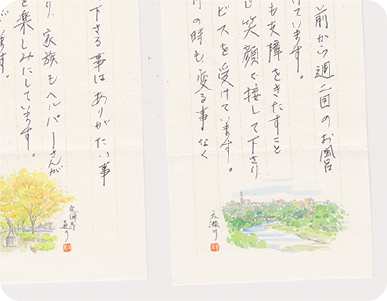 前から週二回のお風呂
けています。
も支障をきたすこと
笑顔で接して下さり
ビスを受けています。
の時も変る事なく
広瀬川
下さる事はありがたい事
り、家族もヘルパーさんが
を楽しみにしています。
ます。
定禅寺
通り